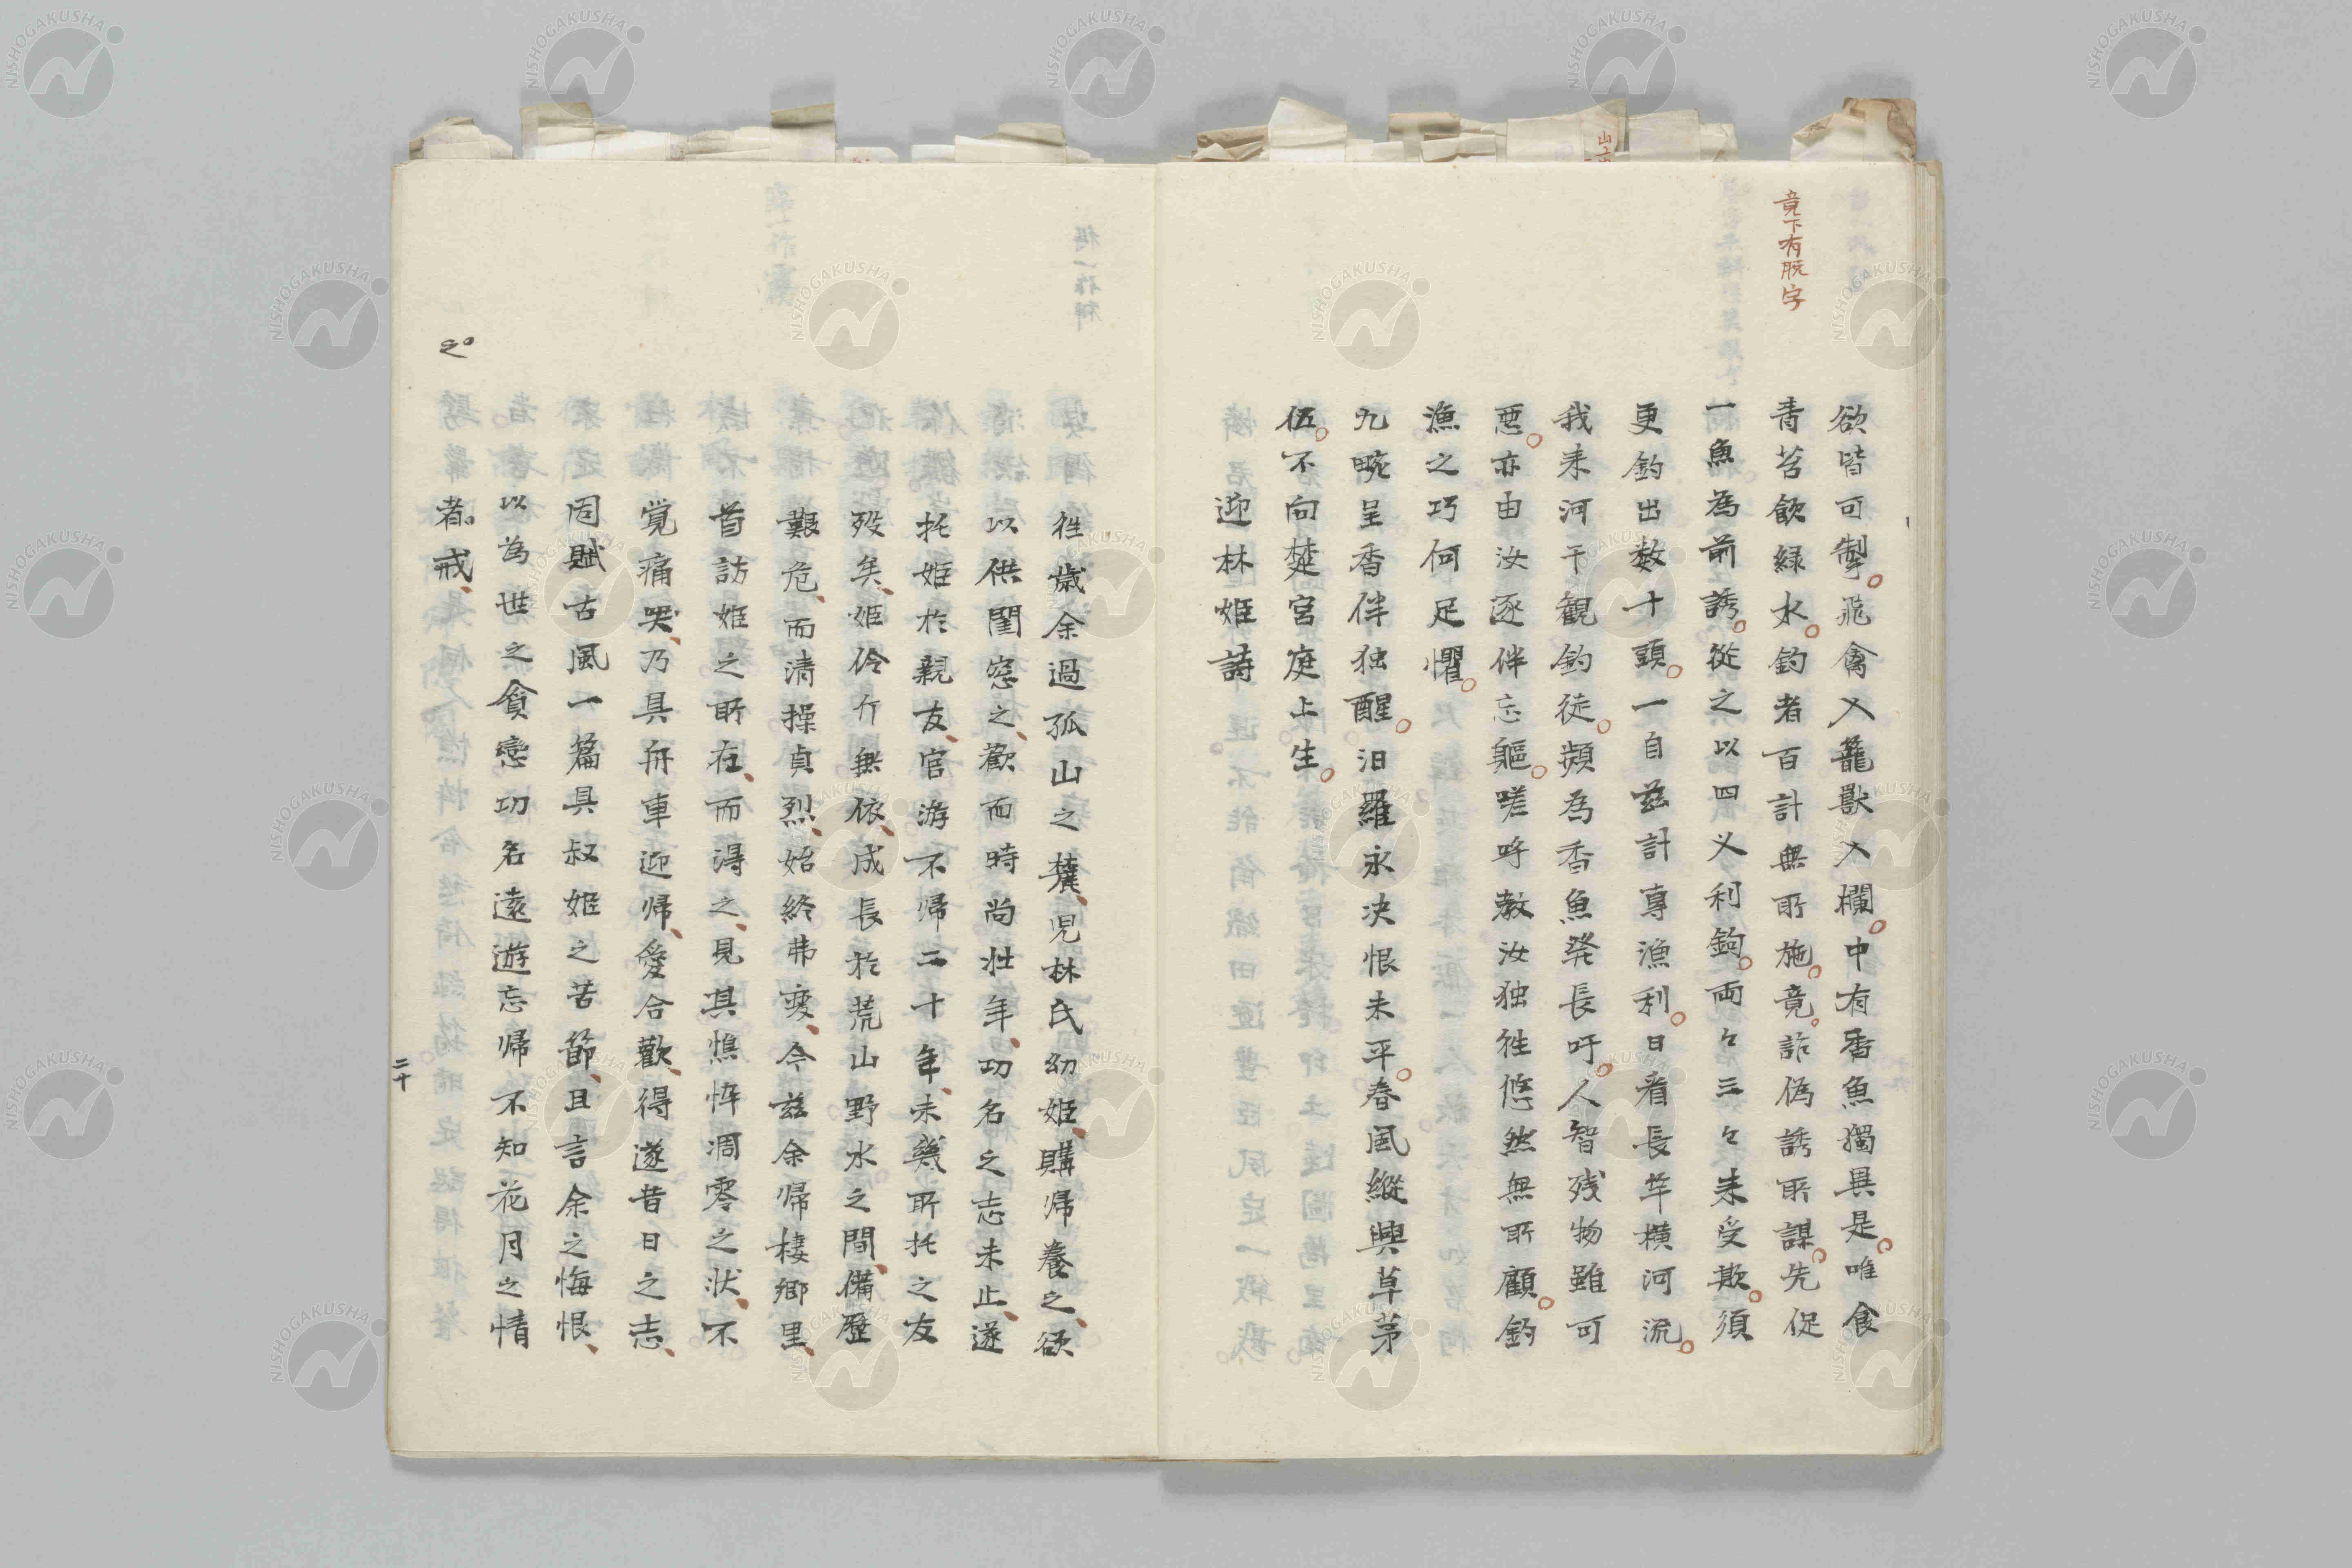 竟下有脱字
欲皆可製飛禽入籠獸入欄中有香魚獨異是唯食
青苔飲緑水釣者百計無所施竟詐偽誘所謀先促
一魚為前誘從之以四义利鉤両々三々来受欺須
更釣出数十頭一自玆計専漁利日看長竿横河流
我来河干観釣徒頻為香魚発長吁人智残物雖可
悪亦由汝逐伴忘軀嗟呼教汝独往悠然無所顧釣
漁之巧何足懼
九畹呈香伴独醒汨羅永决恨未平春風縦興草茅
伍不向楚宮庭上生
迎林姫詩
往歳余過孤山之麓児林氏幼姫購帰養之欲
以供閨窓之歡而時尚壮年功名之志未止遂
托姫於親友官游不帰二十年未幾所托之友
歿矣姫伶仃無依成長於荒山野水之間備歴
艱危而清操貞烈始終弗変今玆余帰棲郷里
首訪姫之所在而得之見其憔悴凋零之状不
覚痛哭乃具舟車迎帰愛合歡得遂昔日之志
因賦古風一篇具叙姫之苦節且言余之悔恨
以為世之貪戀功名遠遊忘帰不知花月之情
者戒
之
二十
NISHOGAKUSHA